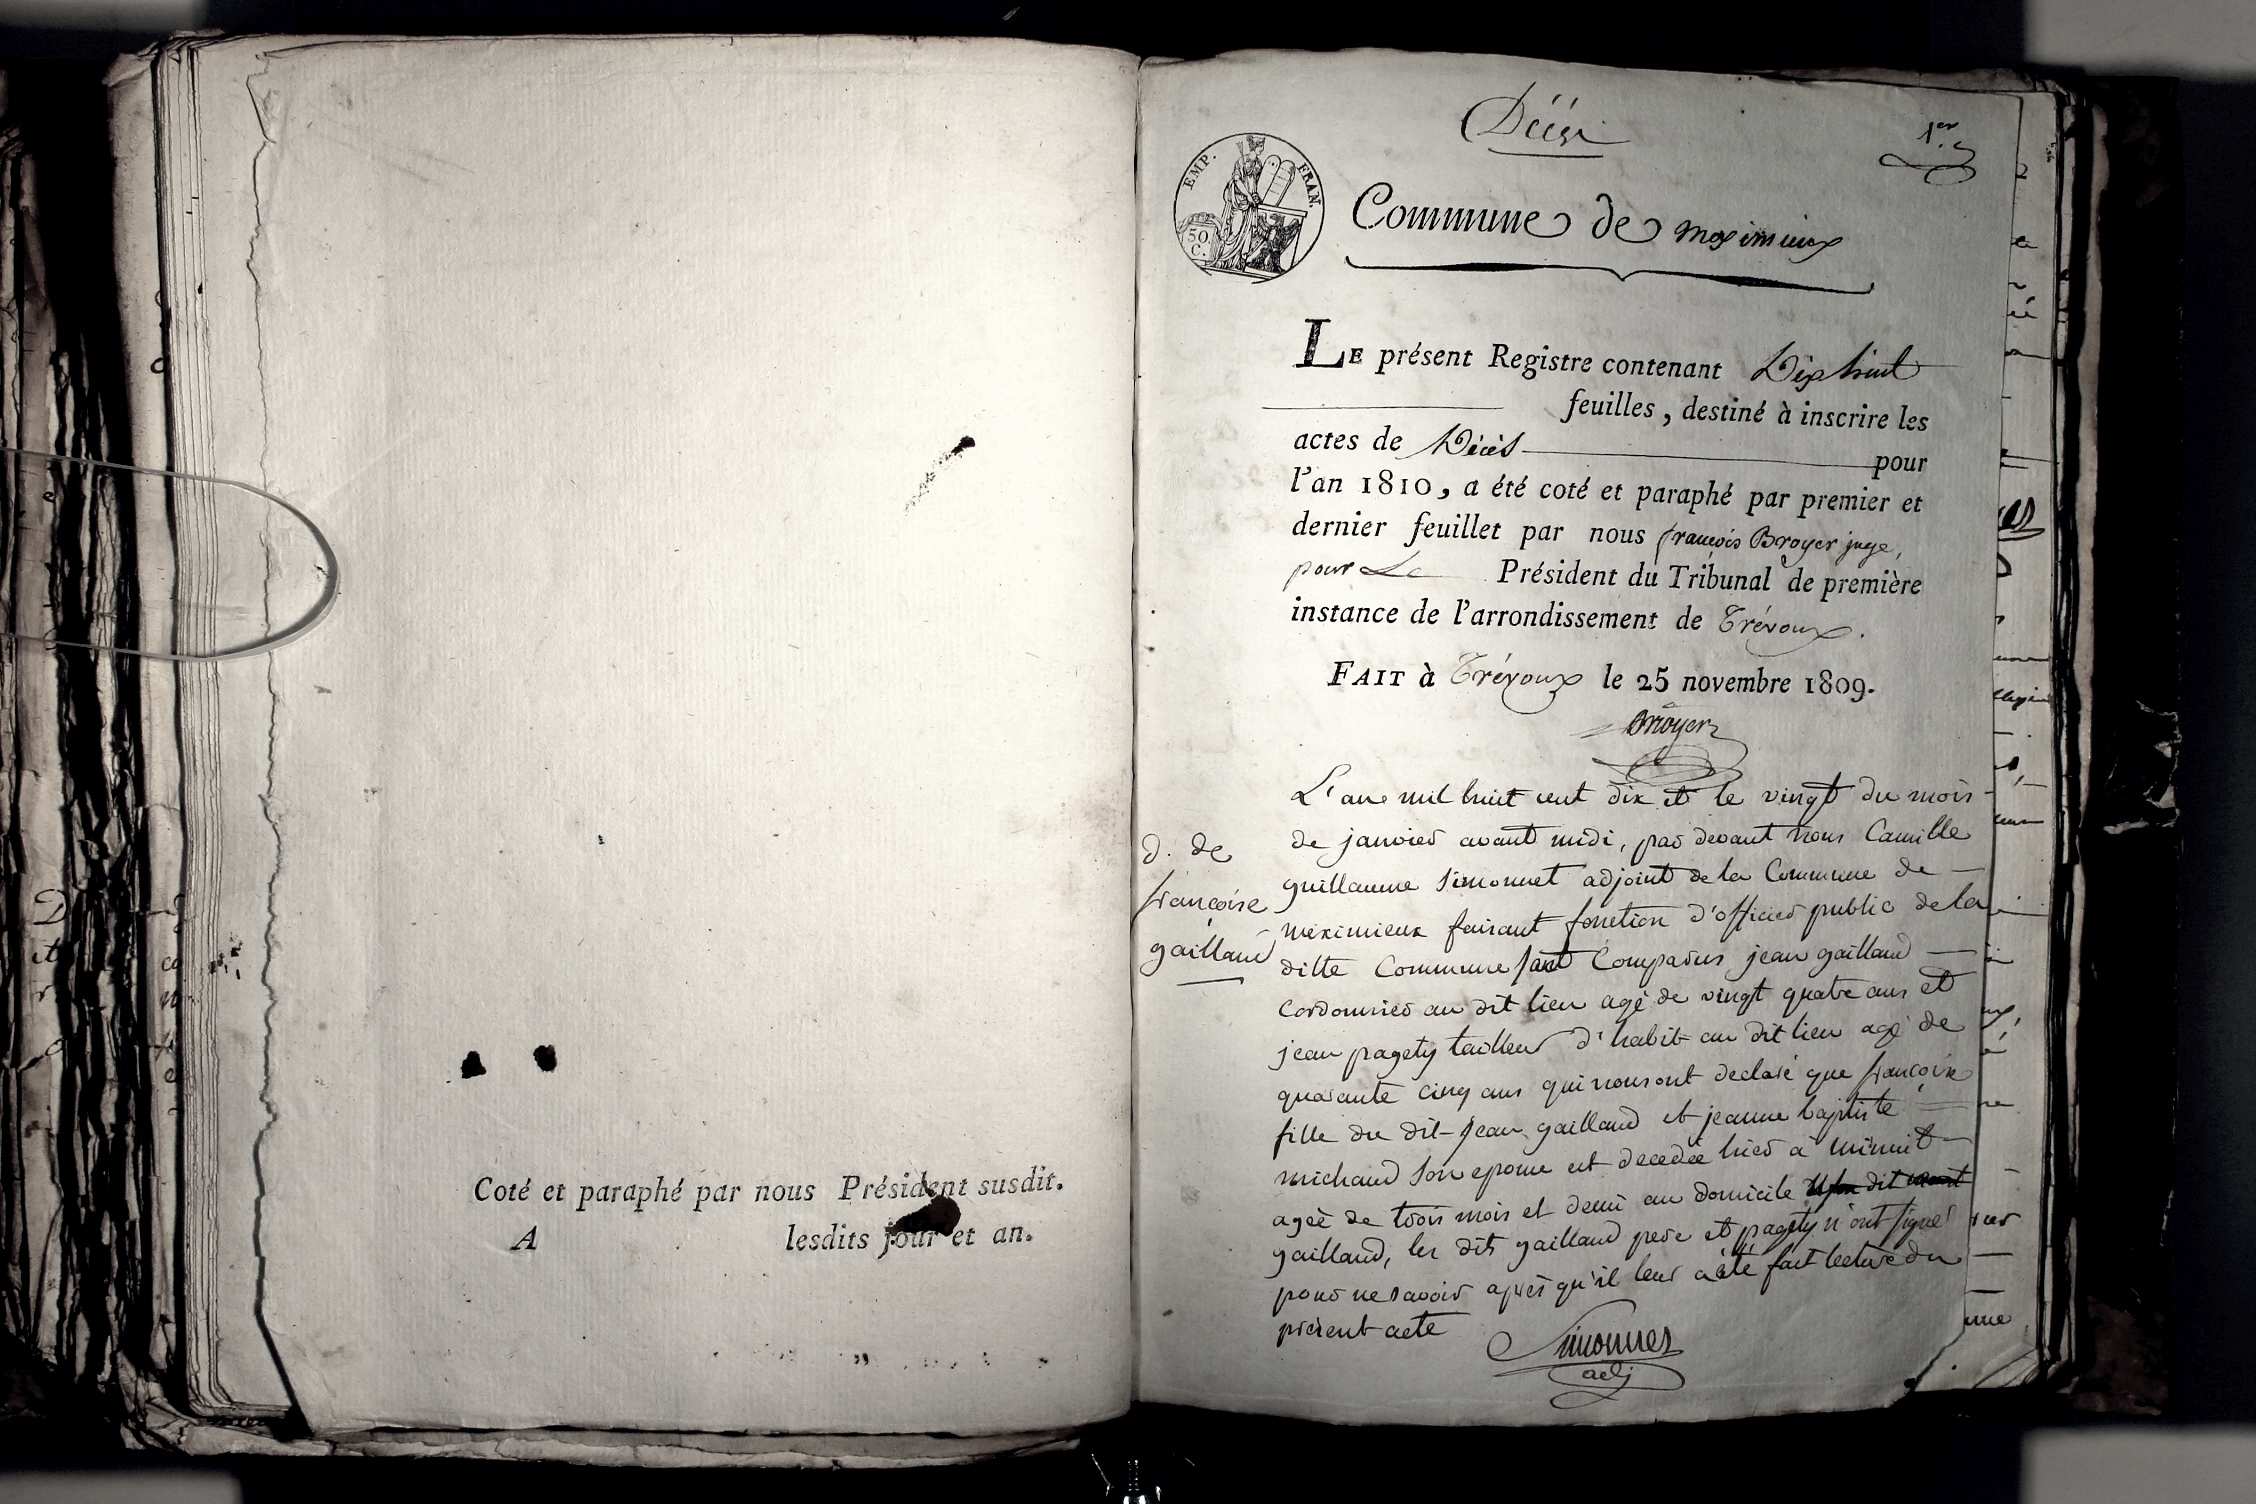 Coté et paraphé par nous Président susdit.
A lesdits jour et an.
Décès
1er
EMP. FRAN.
50 C.
Commune de meximieux
LE présent Registre contenant Dix huit
feuilles, destiné à inscrire les
actes de Décès pour
l'an 1810, a été coté et paraphé par premier et
dernier feuillet par nous françois Broyer juge,
pour Le Président du Tribunal de première
instance de l'arrondissement de Trévoux.
FAIT à Trévoux le 25 novembre 1809.
Broyer
d. de
françoise
gailland
L'an mil huit cent dix et le vingt du mois
de janvier avant midi, par devant nous Camille
guillaume Simonnet adjoint de la Commune de
meximieux faisant fonction d'officier public de la
ditte Commune sont Comparus jean gailland
cordonnier au dit lieu agé de vingt quatre ans et
jean pagety tailleur d'habit au dit lieu agé de
quarante cinq ans qui nous ont declaré que françoise
fille du dit jean gailland et jeanne baptiste
michaud son epouse est decedée hier à minuit
ageé de trois mois et demi au domicile dit
gailland, les dits gailland pere et pagety n'ont signé
pour ne savoir après qu'il leur a été fait lecture du
présent acte
Simonnet
adj